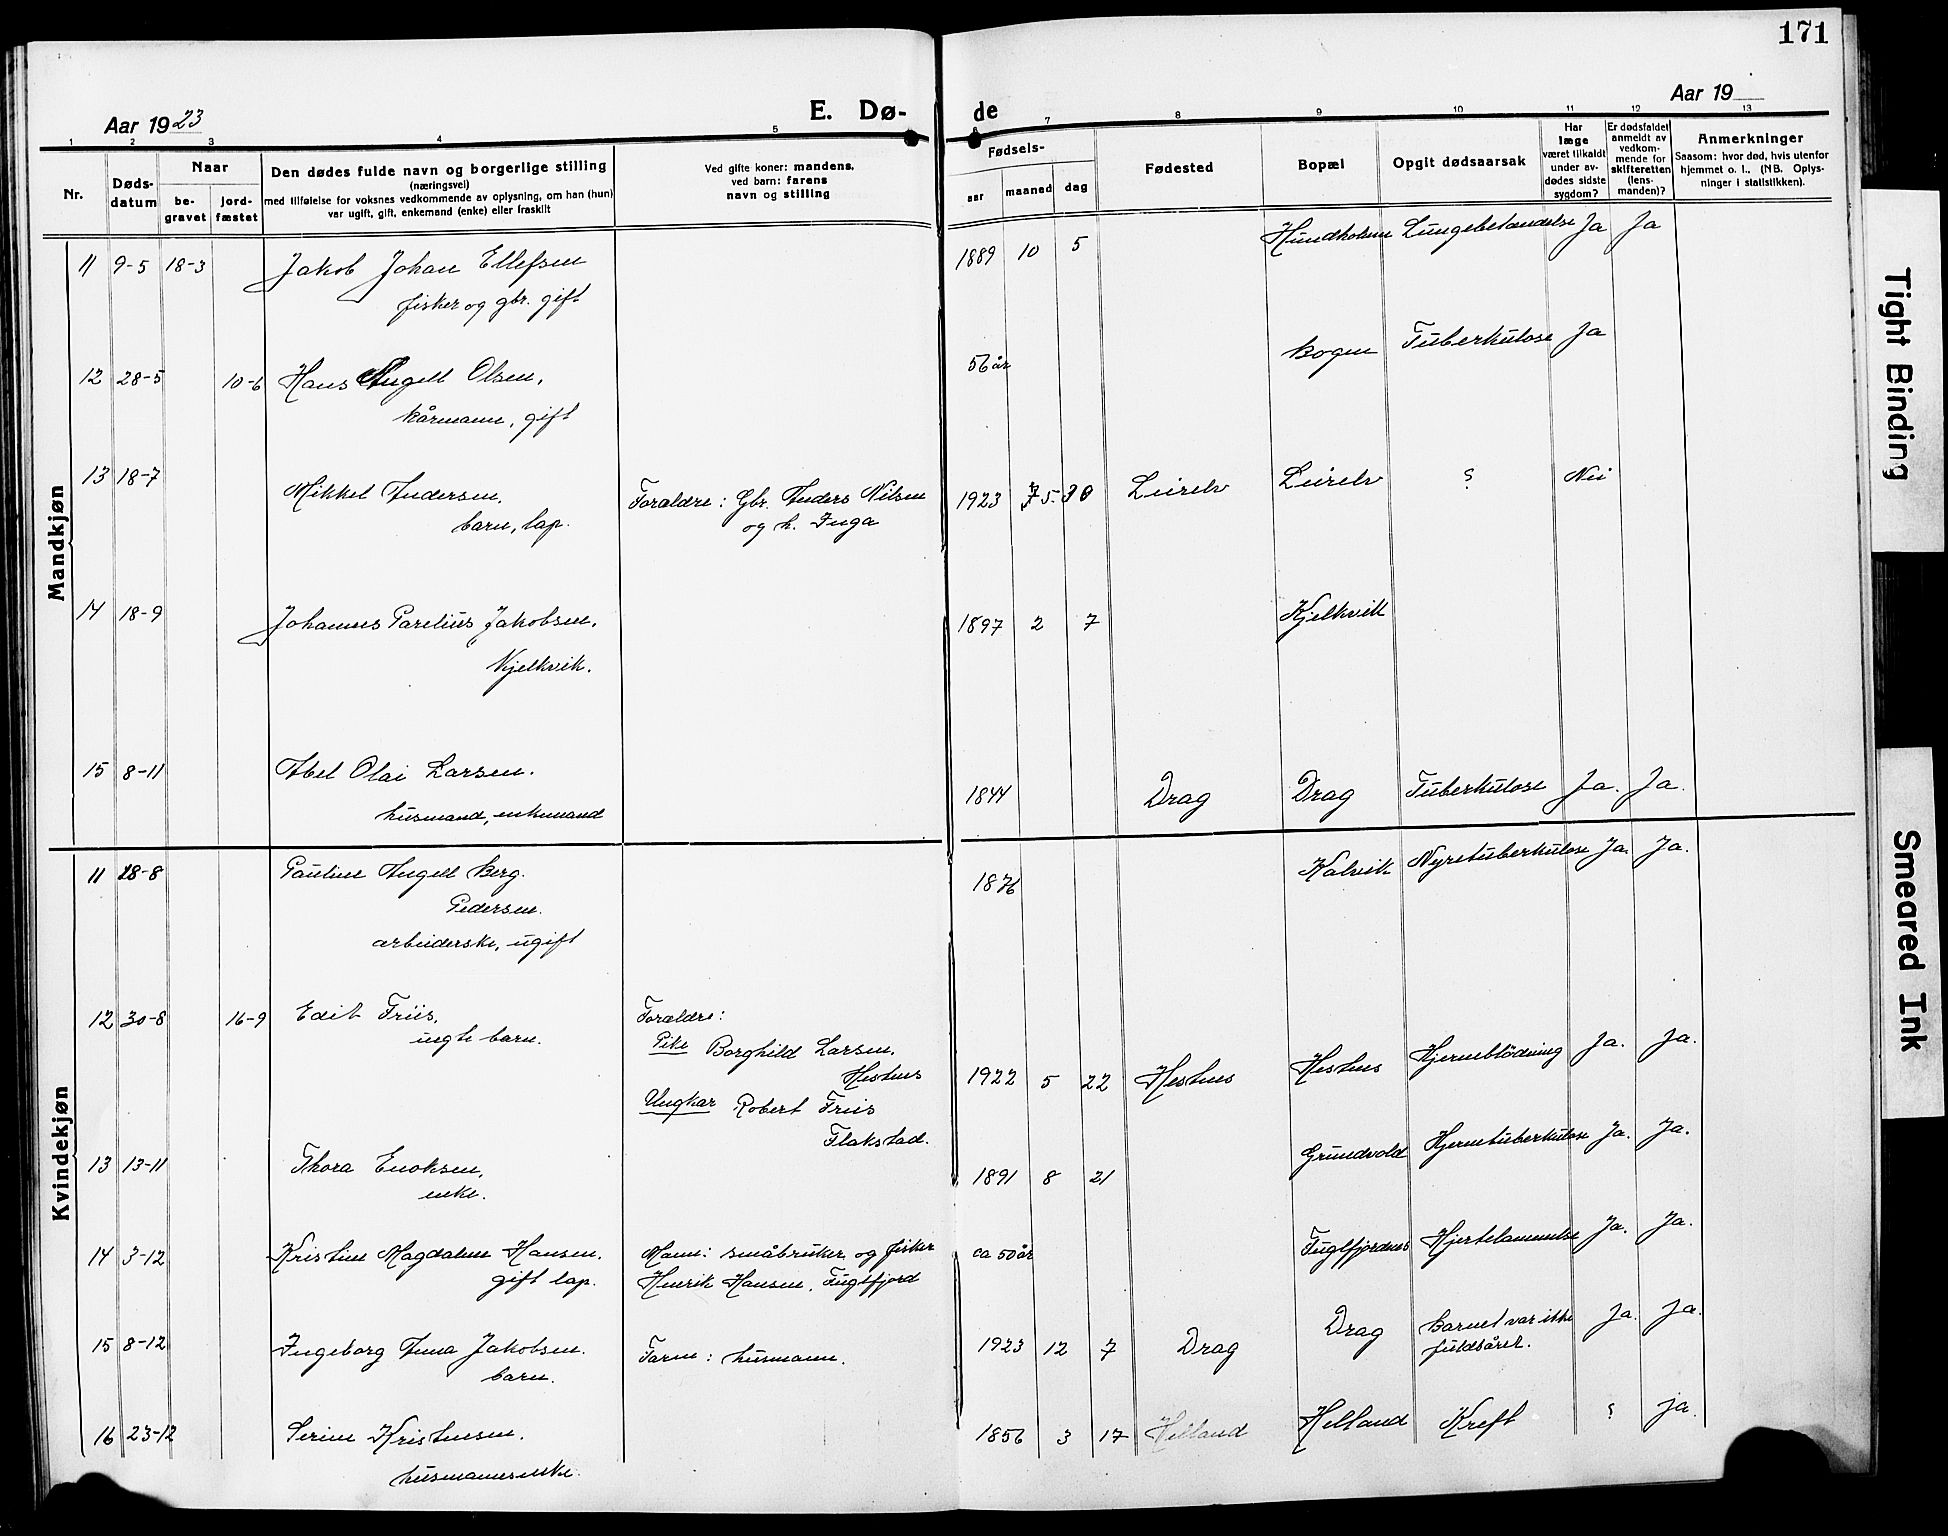 171
Aar 1923
E. Dø-
de
Aar 19
1 2 3 4 5 6 7 8 9 10 11 12 13
Nr.
Døds-
datum
Naar
be-
gravet
jord-
fæstet
Den dødes fulde navn og borgerlige stilling
(næringsvei)
med tilføielse for voksnes vedkommende av oplysning, om han (hun)
var ugift, gift, enkemand (enke) eller fraskilt
Ved gifte koner: mandens,
ved barn: farens
navn og stilling
Fødsels-
aar maaned dag
Fødested
Bopæl
Opgit dødsaarsak
Har
læge
været tilkaldt
under av-
dødes sidste
sygdom?
Er dødsfaldet
anmeldt av
vedkom-
mende for
skifteretten
(lens-
manden)?
Anmerkninger
Saasom: hvor død, hvis utenfor
hjemmet o. l.. (NB. Oplys-
ninger i statistikken).
Mandkjøn
11 9-5 18-3 Jakob Johan Ellefsen 1889 10 5 Hundholmen Lungebetændelse Ja Ja
fisker og gbr. gift
12 28-5 10-6 Hans Angell Olsen, 56 år Bogen Tuberkulose Ja
kårmann, gift
13 18-7 Mikkel Andersen, Forældre: Gbr. Anders Nilsen 1923 5. 30 Leirelv Leirelv ? Nei
barn, lap. og h. Inga
14 18-9 Johannes Parelius Jakobsen, 1897 2 7 Kjelkvik
Kjelkvik.
15 8-11 Abel Olai Larsen. 1844 Drag Drag Tuberkulose Ja. Ja.
husmand, enkemand
Kvindekjøn
11 28-8 Pauline Angell Berg. 1876 Kalvik Nyretuberkulose Ja. Ja.
Pedersen.
arbeiderske, ugift
12 30-8 16-9 Edit Friis, Forældre: 1922 5 22 Hestnes Hestnes Hjerneblödning Ja. Ja.
uegte barn. Pike Borghild Larsen,
Hestnes
Ungkar Robert Friis
Flakstad.
13 13-11 Thora Enoksen, 1891 8 21 Grundvold Hjernetuberkulose Ja. Ja.
enke.
14 3-12 Kristine Magdalene Hansen. Mann: småbruker og fisker ca 50 år Fuglfjorden Hjertelammelse Ja. Ja.
gift lap. Henrik Hansen, Fuglfjord
15 8-12 Ingeborg Anna Jakobsen. Faren: husmann. 1923 12 7 Drag Drag Barnet var ikke Ja. Ja.
barn. fuldbåret.
16 23-12 Serine Kristensen. 1856 3 17 Helland Helland Kreft ? ja.
husmannsenke.
Tight Binding
Smeared Ink